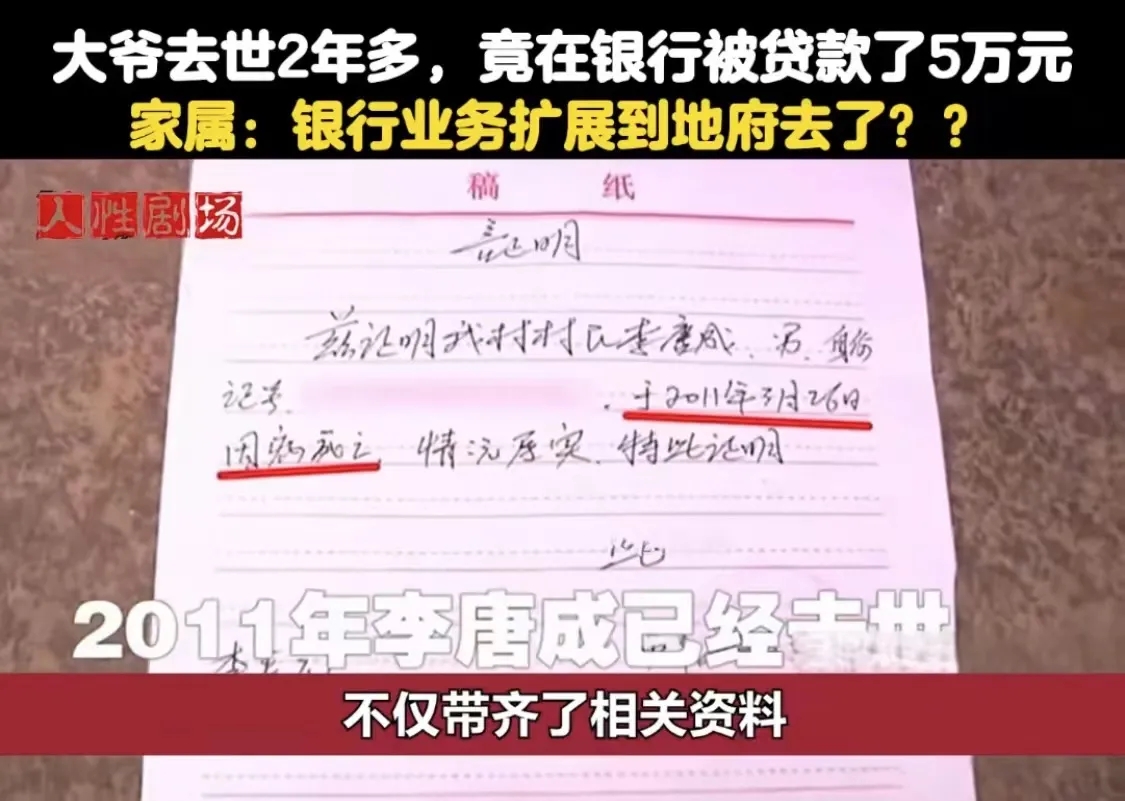 大爷去世2年多，竟在银行被贷款了5万元
家属：银行业务扩展到地府去了？？
人性剧场
稿 纸
证明
兹证明我村村民李唐成、男、身份
证号、
，于2011年3月26日
因病死亡，情况属实、特此证明
此
2011年李唐成已经去世
不仅带齐了相关资料